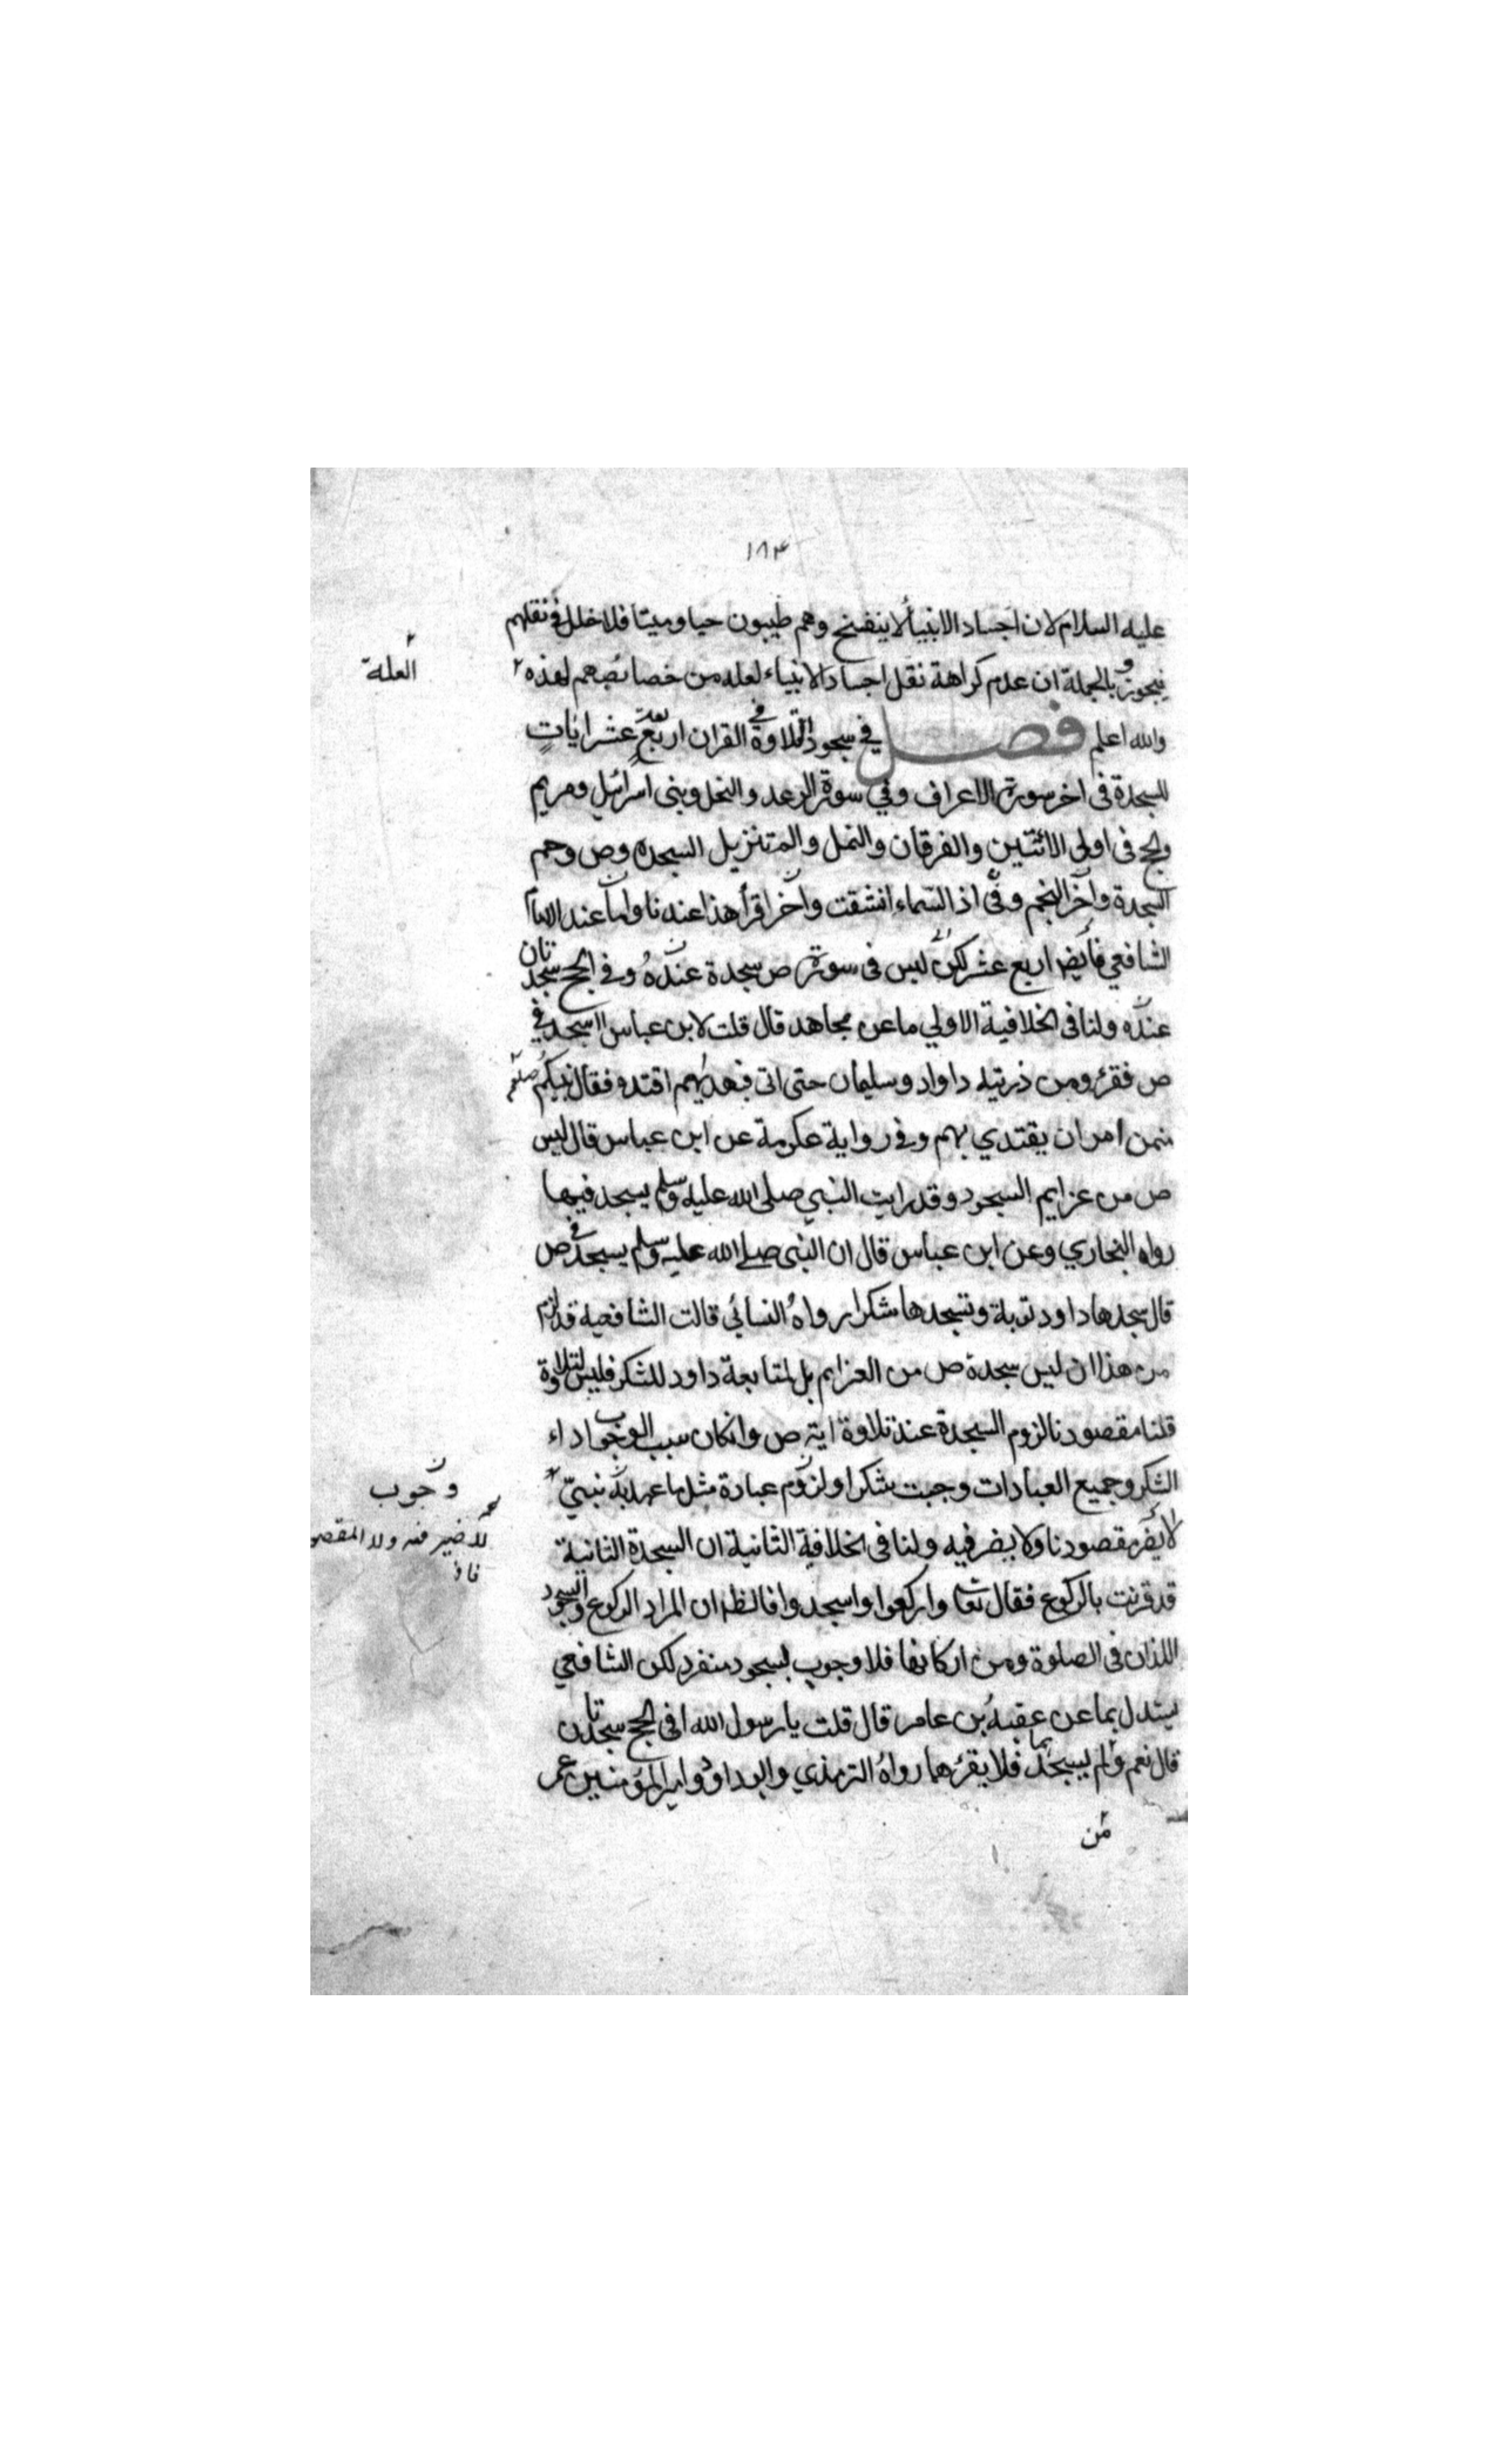 ١٨٤
عليه السلام لان اجساد الانبياء لا ينفسخ وهم طيبون حيا وميتا فلا خلل في نقلهم
فيجوز وبالجملة ان عدم كراهة نقل اجساد الانبياء لعله من خصائصهم لهذه
العلة
والله اعلم فصل في سجود التلاوة في القران اربعة عشر ايات
للسجدة في اخر سورة الاعراف وفي سورة الرعد والنحل وبني اسرائيل ومريم
والحج في اولى الاثنتين والفرقان والنمل والم تنزيل السجده وص وحم
السجدة واخر النجم وفي اذا السماء انشقت واخر اقرأ هذا عندنا واما عند الامام
الشافعي فايض اربع عشر لكن ليس في سورة ص سجدة عنده وفي الحج سجدتان
عنده ولنا في الخلافية الاولي ما عن مجاهد قال قلت لابن عباس ااسجد في
ص فقرء ومن ذريته داواد وسليمان حتى اتى فبهديهم اقتده فقال نبيكم صلعم
ممن امر ان يقتدي بهم وفي رواية عكرمة عن ابن عباس قال ليس
ص من عزايم السجود وقد رايت النبي صلى الله عليه وسلم يسجد فيها
رواه البخاري وعن ابن عباس قال ان النبي صلى الله عليه وسلم يسجد في ص
قال سجدها داود توبة ونسجدها شكرا رواه النسائي قالت الشافعية قد لزم
من هذا ان ليس سجدة ص من العزايم بل لمتابعة داود للشكر فليس لتلاوة
قلنا مقصودنا لزوم السجدة عند تلاوة اية ص وانكان سبب الوجوب اداء
الشكر وجميع العبادات وجبت شكرا ولزوم عبادة مثل ما عهد به نبي
وجوب
لا يضر مقصودنا ولا يضر فيه ولنا في الخلافة الثانية ان السجدة الثانية
لا ضير فيه ولا المقصو
قد قرنت بالركوع فقال تعا واركعوا واسجدوا فالظ ان المراد الركوع والسجود
اللذان في الصلوة ومن اركانها فلا وجوب لسجود منفرد لكن الشافعي
يستدل بما عن عقبة بن عامر قال قلت يا رسول الله افي الحج سجدتان
قال نعم ولم يسجدهما فلا يقرئهما رواه الترمذي وابو داود وامير المؤمنين عمر
من